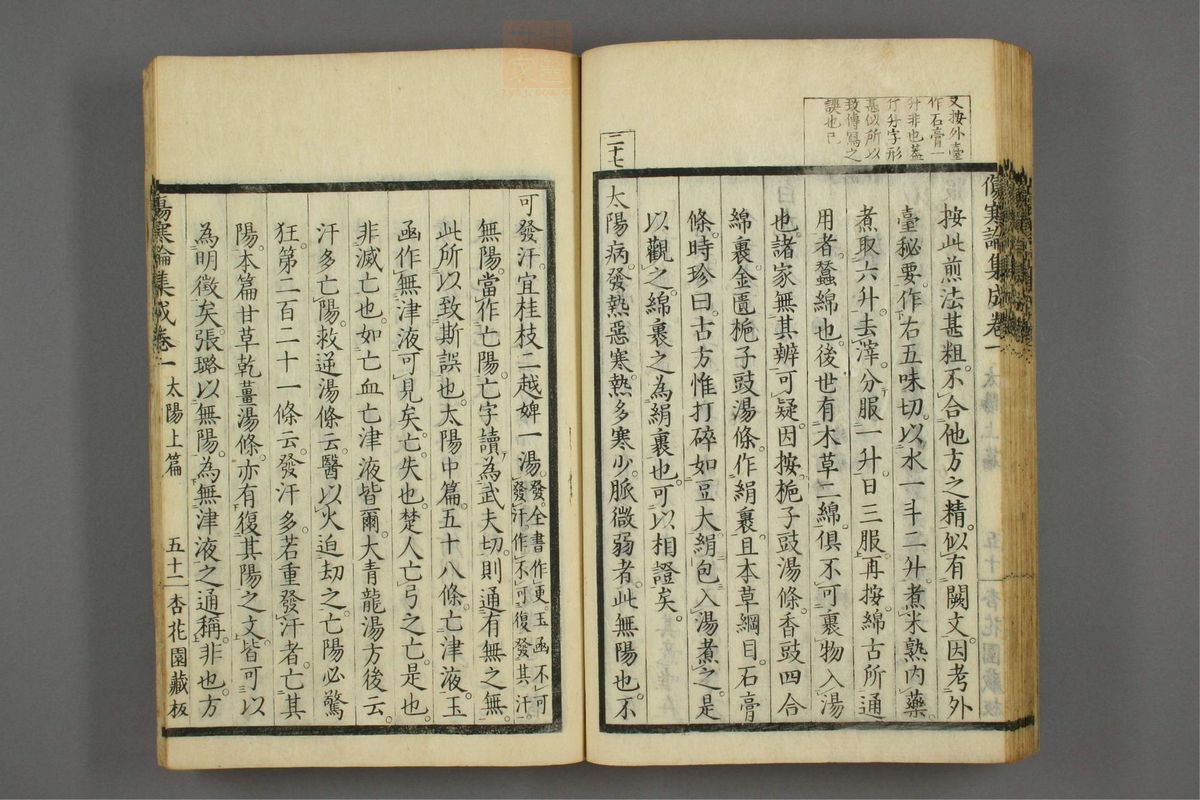 又按外臺
作石膏一
升非也蓋
行升字形
甚似所以
致傳寫之
誤也已
傷寒論集成卷一
按此煎法甚粗不合他方之精似有闕文因考外
臺秘要作右五味切以水一斗二升煮米熟内藥
煮取六升去滓分服一升日三服再按綿古所通
用者蠶綿也後世有木草二綿俱不可裹物入湯
也諸家無其辨可疑因按梔子豉湯條香豉四合
綿裹金匱梔子豉湯條作絹裹且本草綱目石膏
條時珍曰古方惟打碎如豆大絹包入湯煮之是
以觀之綿裹之為絹裹也可以相證矣
二十七
太陽病發熱惡寒熱多寒少脈微弱者此無陽也不
可發汗宜桂枝二越婢一湯發全書作更玉函不可
發汗作不可復發其汗
無陽當作亡陽亡字讀為武夫切則通有無之無
此所以致斯誤也太陽中篇五十八條亡津液玉
函作無津液可見矣亡失也楚人亡弓之亡是也
非滅亡也如亡血亡津液皆爾大青龍湯方後云
汗多亡陽救逆湯條云醫以火迫劫之亡陽必驚
狂第二百二十一條云發汗多若重發汗者亡其
陽本篇甘草乾薑湯條亦有復其陽之文皆可以
為明徵矣張璐以無陽為無津液之通稱非也方
傷寒論集成卷一 太陽上篇 五十二 杏花園藏板